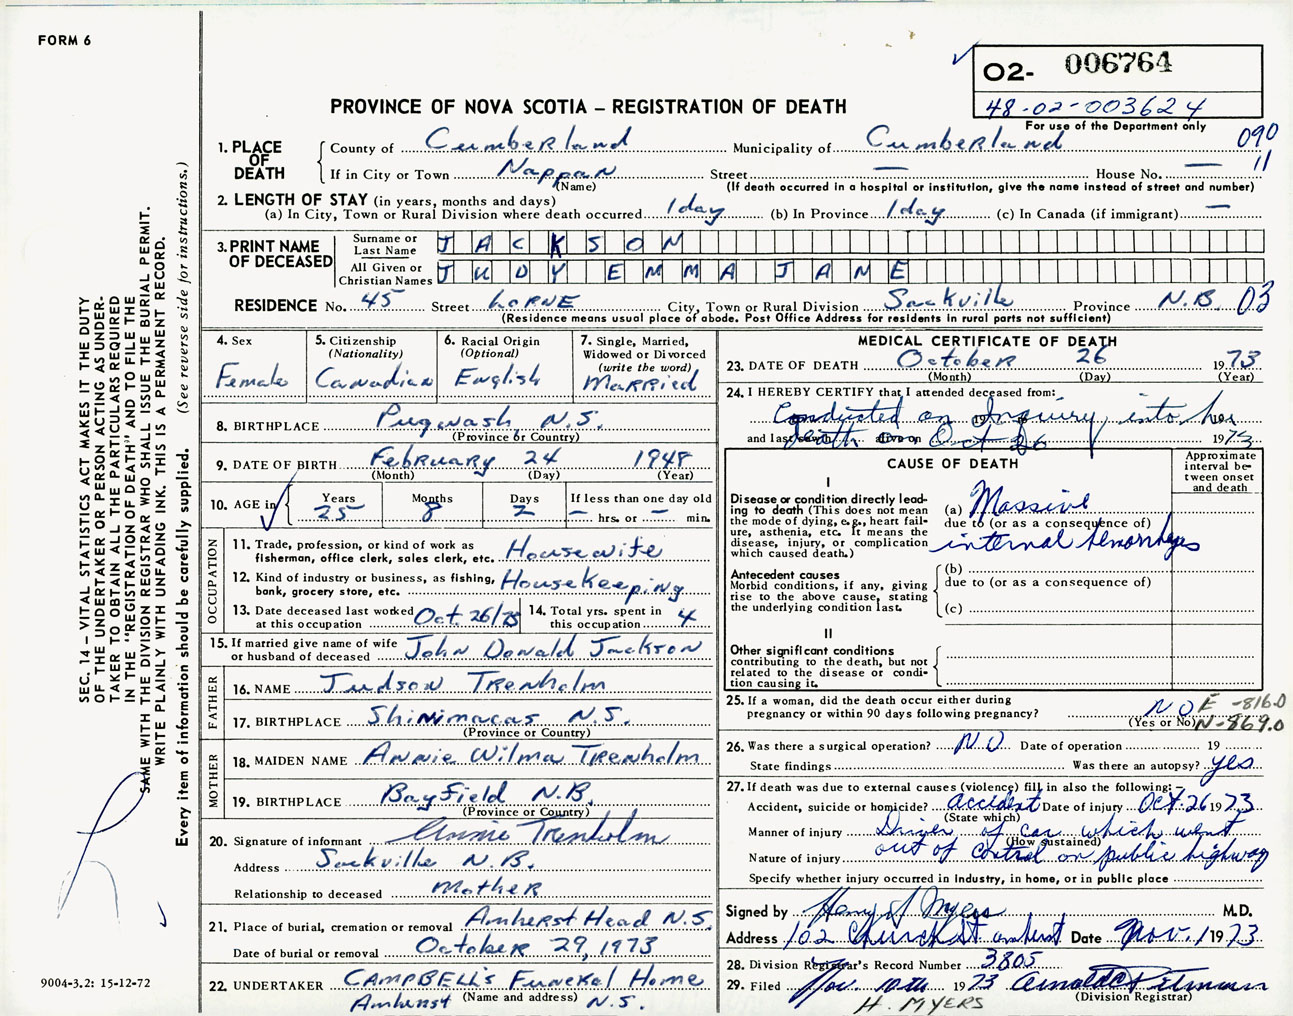 FORM 6
O2- 006764
48-02-003624
For use of the Department only
PROVINCE OF NOVA SCOTIA – REGISTRATION OF DEATH
1. PLACE OF DEATH
County of Cumberland Municipality of Cumberland 090
If in City or Town Nappan Street — House No. — 11
(Name) (If death occurred in a hospital or institution, give the name instead of street and number)
2. LENGTH OF STAY (in years, months and days)
(a) In City, Town or Rural Division where death occurred 1 day (b) In Province 1 day (c) In Canada (if immigrant) —
3. PRINT NAME OF DECEASED
Surname or Last Name JACKSON
All Given or Christian Names JUDY EMMA JANE
RESIDENCE No. 45 Street LORNE City, Town or Rural Division Sackville Province N.B. 03
(Residence means usual place of abode. Post Office Address for residents in rural parts not sufficient)
4. Sex
Female
5. Citizenship
(Nationality)
Canadian
6. Racial Origin
(Optional)
English
7. Single, Married, Widowed or Divorced
(write the word)
Married
8. BIRTHPLACE Pugwash, N.S.
(Province or Country)
9. DATE OF BIRTH February 24 1948
(Month) (Day) (Year)
10. AGE in Years 25 Months 8 Days 2 If less than one day old
– hrs. or – min.
OCCUPATION
11. Trade, profession, or kind of work as fisherman, office clerk, sales clerk, etc. Housewife
12. Kind of industry or business, as fishing, bank, grocery store, etc. Housekeeping
13. Date deceased last worked at this occupation Oct. 26/73
14. Total yrs. spent in this occupation 4
15. If married give name of wife or husband of deceased John Donald Jackson
FATHER
16. NAME Judson Trenholm
17. BIRTHPLACE Shinimacas N.S.
(Province or Country)
MOTHER
18. MAIDEN NAME Annie Wilma Trenholm
19. BIRTHPLACE Bayfield N.B.
(Province or Country)
20. Signature of informant Annie Trenholm
Address Sackville N.B.
Relationship to deceased Mother
21. Place of burial, cremation or removal Amherst Head N.S.
Date of burial or removal October 29, 1973
22. UNDERTAKER CAMPBELL'S Funeral Home
(Name and address)
Amherst N.S.
MEDICAL CERTIFICATE OF DEATH
23. DATE OF DEATH October 26 1973
(Month) (Day) (Year)
24. I HEREBY CERTIFY that I attended deceased from:
Conducted an Inquiry into her
death on Oct 26 1973
CAUSE OF DEATH
Approximate interval between onset and death
I
Disease or condition directly leading to death (This does not mean the mode of dying, e.g., heart failure, asthenia, etc. It means the disease, injury, or complication which caused death.)
(a) Massive
due to (or as a consequence of)
internal hemorrhages
Antecedent causes
Morbid conditions, if any, giving rise to the above cause, stating the underlying condition last.
(b)
due to (or as a consequence of)
(c)
II
Other significant conditions
contributing to the death, but not related to the disease or condition causing it.
25. If a woman, did the death occur either during pregnancy or within 90 days following pregnancy? NO
(Yes or No)
E -816.0
N-869.0
26. Was there a surgical operation? NO Date of operation 19
State findings Was there an autopsy? yes
27. If death was due to external causes (violence) fill in also the following:
Accident, suicide or homicide? accident Date of injury Oct. 26 1973
(State which)
Manner of injury Driver of car which went
(How sustained)
Nature of injury out of control on public highway
Specify whether injury occurred in industry, in home, or in public place
Signed by Henry S Myers M.D.
Address 102 Church St Amherst Date Nov. 1 1973
28. Division Registrar's Record Number 3805
29. Filed Nov. 10th 1973
(Division Registrar)
H. MYERS
SEC. 14 – VITAL STATISTICS ACT MAKES IT THE DUTY
OF THE UNDERTAKER OR PERSON ACTING AS UNDER-
TAKER TO OBTAIN ALL THE PARTICULARS REQUIRED
IN THE "REGISTRATION OF DEATH" AND TO FILE THE
SAME WITH THE DIVISION REGISTRAR WHO SHALL ISSUE THE BURIAL PERMIT.
WRITE PLAINLY WITH UNFADING INK. THIS IS A PERMANENT RECORD.
Every item of information should be carefully supplied. (See reverse side for instructions.)
9004-3.2: 15-12-72